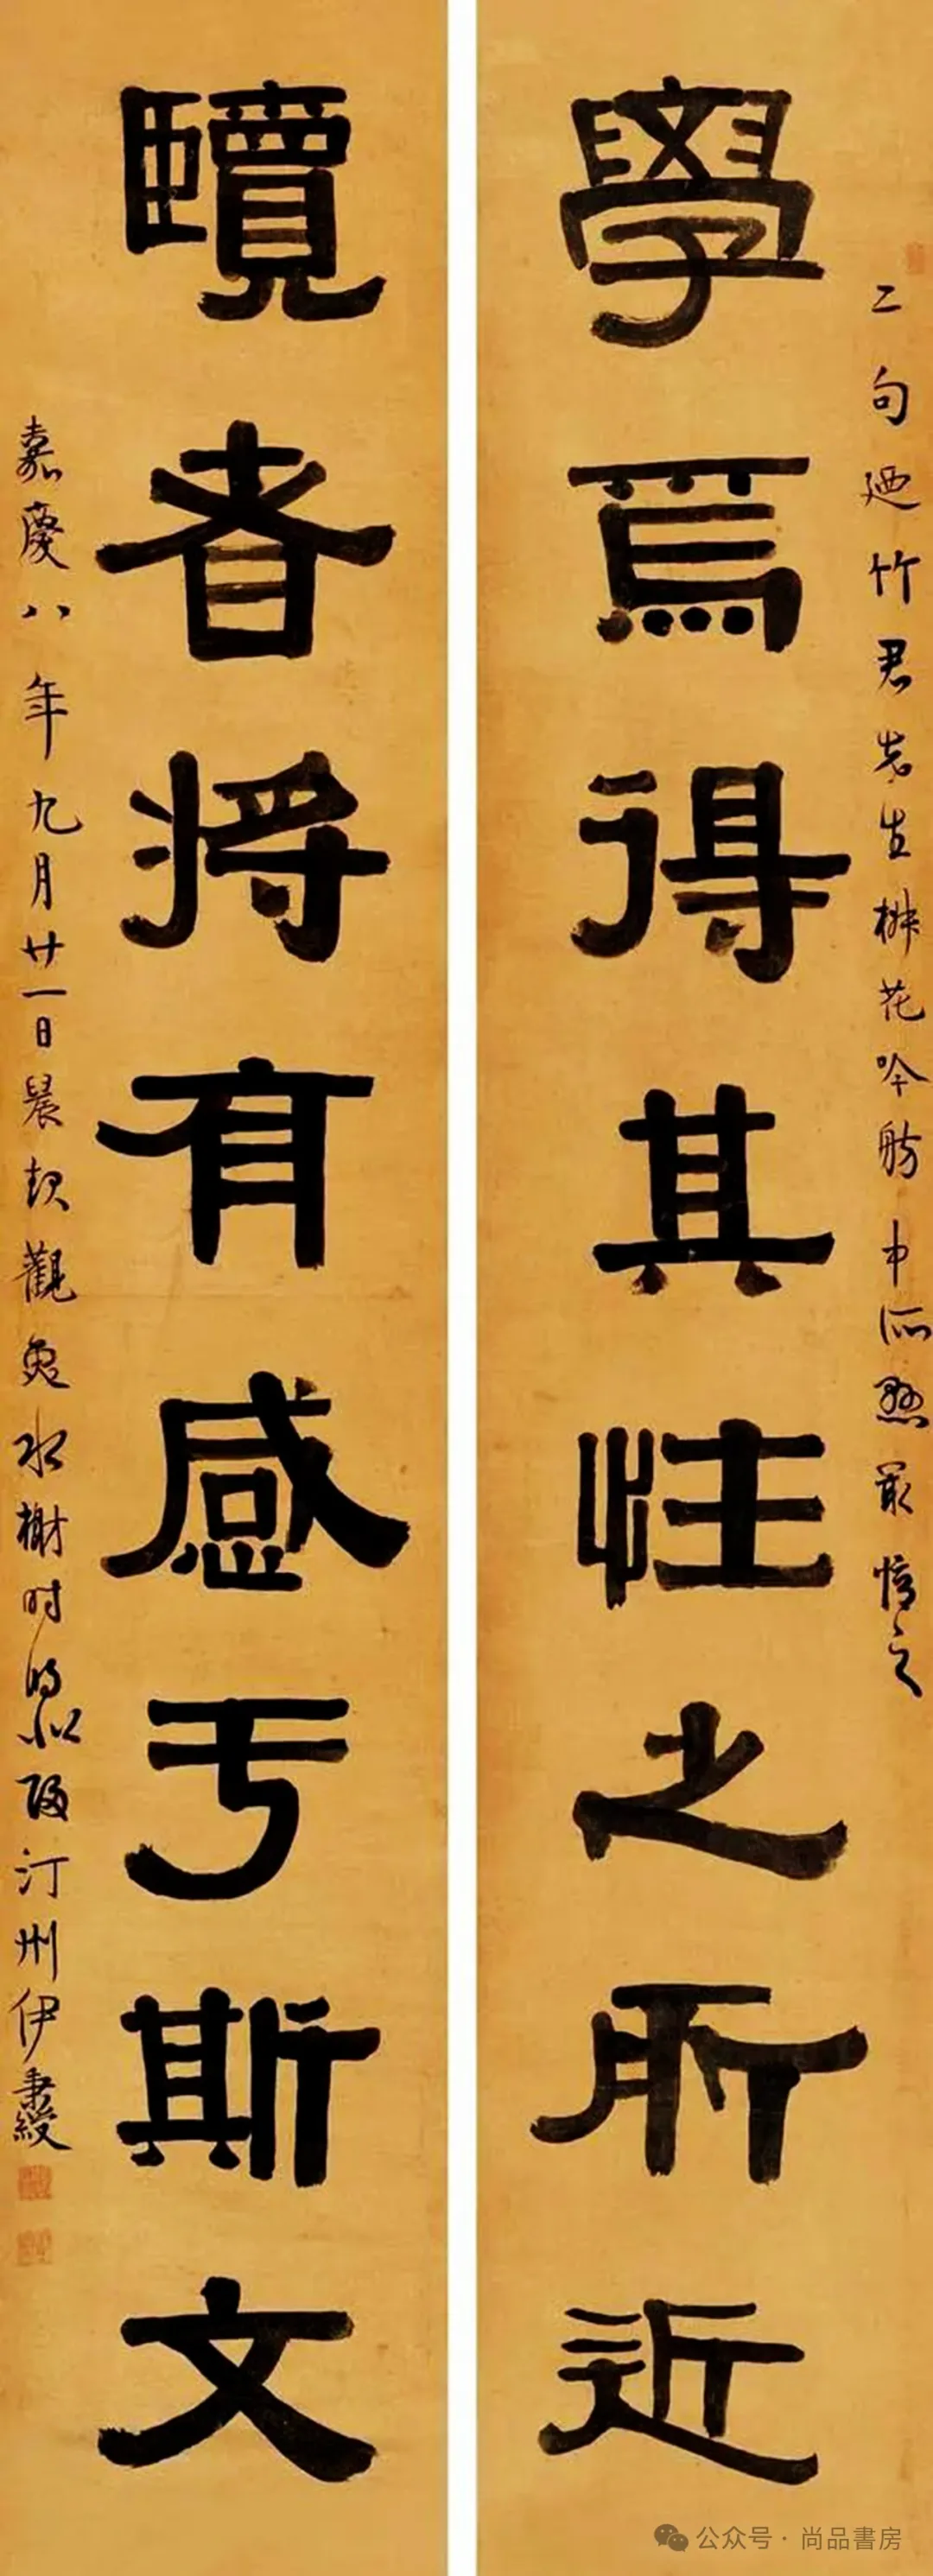 二句迺竹君先生椒花吟舫中所懸最憶之
學焉得其性之所近
覽者將有感亏斯文
嘉慶八年九月廿一日晨起觀水榭時汀州伊秉綬
公众号 · 尚品書房